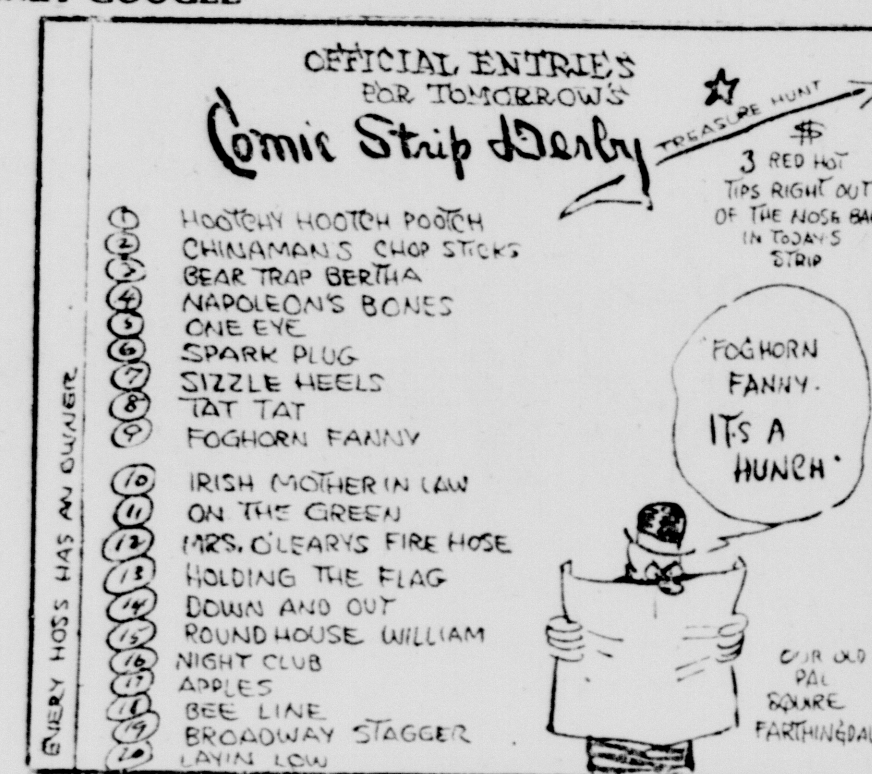 GOOGLE
OFFICIAL ENTRIES
FOR TOMORROW'S
Comic Strip Derby
TREASURE HUNT
$
3 RED HOT
TIPS RIGHT OUT
OF THE NOSE BAG
IN TODAYS
STRIP
EVERY HOSS HAS AN OWNER
1 HOOTCHY HOOTCH POOTCH
2 CHINAMAN'S CHOP STICKS
3 BEAR TRAP BERTHA
4 NAPOLEON'S BONES
5 ONE EYE
6 SPARK PLUG
7 SIZZLE HEELS
8 TAT TAT
9 FOGHORN FANNY
10 IRISH MOTHER IN LAW
11 ON THE GREEN
12 MRS. O'LEARYS FIRE HOSE
13 HOLDING THE FLAG
14 DOWN AND OUT
15 ROUND HOUSE WILLIAM
16 NIGHT CLUB
17 APPLES
18 BEE LINE
19 BROADWAY STAGGER
20 LAYIN LOW
FOGHORN
FANNY.
IT'S A
HUNCH.
OUR OLD
PAL
SQUIRE